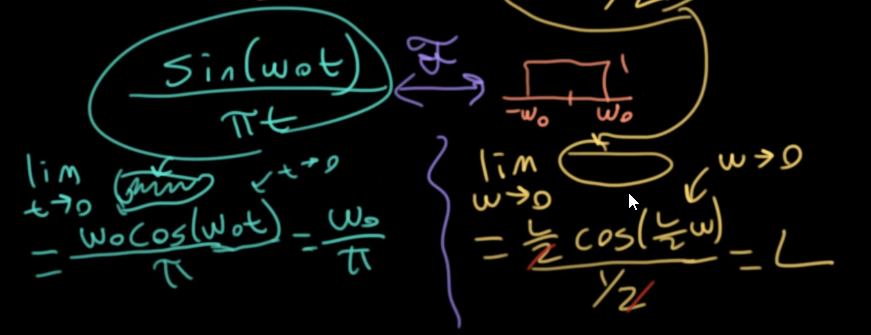 sin(ω₀t) / πt
ℱ
1
-ω₀ ω₀
lim t→0
t→0
= ω₀cos(ω₀t) / π = ω₀ / π
lim ω→0
ω→0
= L/2 cos(L/2 ω) / 1/2 = L